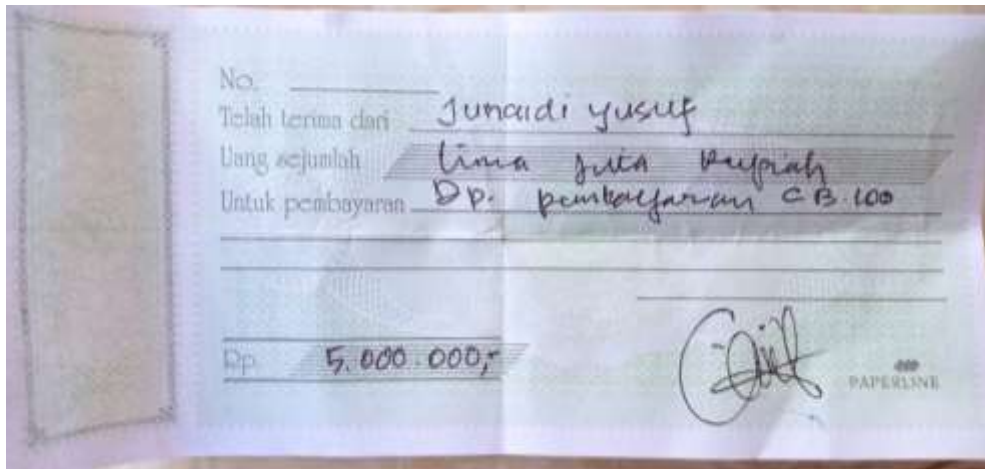 No.
Telah terima dari Junaidi Yusuf
Uang sejumlah lima juta Rupiah
Untuk pembayaran Dp. pembayaran CB.100
Rp. 5.000.000,-
PAPERLINE